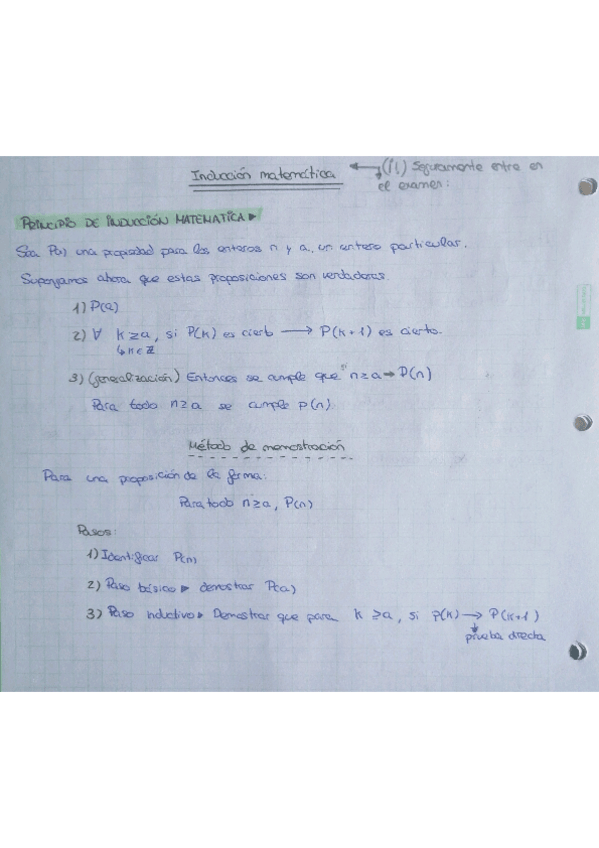 Inducción matemática (¡!) Seguramente entre en
el examen:
PRINCIPIO DE INDUCCIÓN MATEMATICA ▸
Sea P(n) una propiedad para los enteros n y a, un entero particular.
Supongamos ahora que estas proposiciones son verdaderas.
1) P(a)
2) ∀ k ≥ a, si P(k) es cierto → P(k+1) es cierto.
↳ k ∈ ℤ
3) (generalización) Entonces se cumple que "n ≥ a → P(n)
Para todo n ≥ a se cumple P(n).
Método de memostración
Para una proposición de la forma:
Para todo n ≥ a, P(n)
Pasos:
1) Identificar P(n)
2) Paso básico ▸ demostrar P(a)
3) Paso inductivo ▸ Demostrar que para k ≥ a, si P(k) → P(k+1)
prueba directa